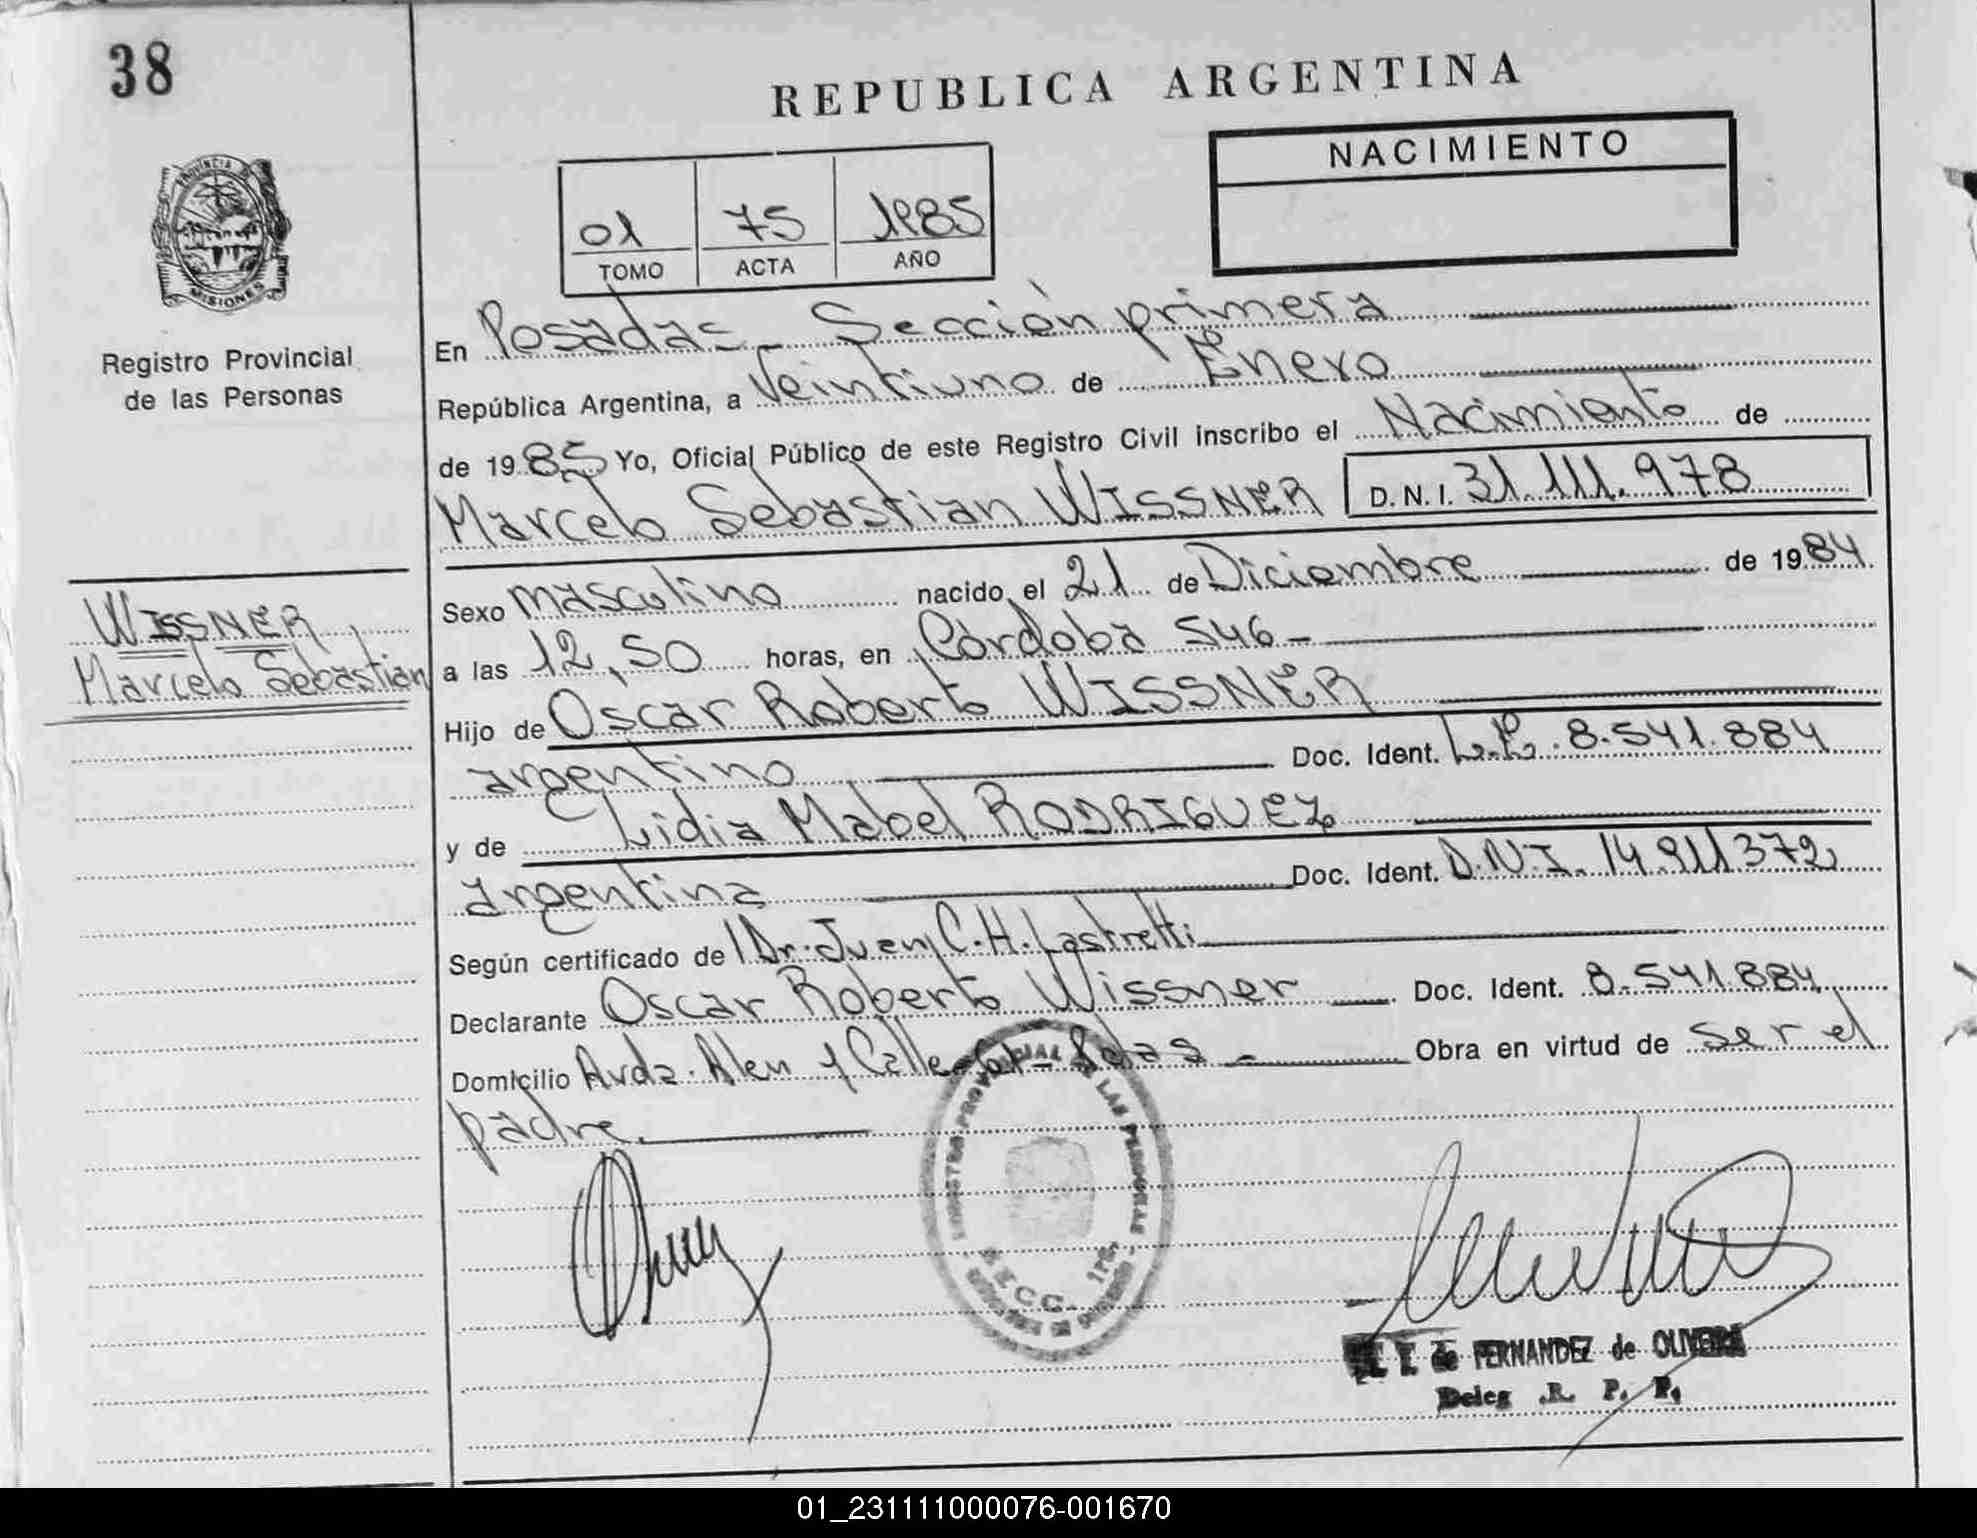 38
REPUBLICA ARGENTINA
PROVINCIA DE
MISIONES
Registro Provincial
de las Personas
01 75 1985
TOMO ACTA AÑO
NACIMIENTO
En Posadas - Sección primera
República Argentina, a Veintiuno de Enero
de 1985 Yo, Oficial Público de este Registro Civil inscribo el Nacimiento de
Marcelo Sebastian WISSNER D.N.I. 31.111.978
WISSNER,
Marcelo Sebastian
Sexo masculino nacido el 21 de Diciembre de 1984
a las 12,50 horas, en Córdoba 546-
Hijo de Oscar Roberto WISSNER
argentino Doc. Ident. L.E. 8.541.884
y de Lidia Mabel RODRIGUEZ
argentina Doc. Ident. D.N.I. 14.911372
Según certificado de Dr. Juan C.H. Lastretti
Declarante Oscar Roberto Wissner Doc. Ident. 8.541.884
Domicilio Avda. Alen y Calle Obra en virtud de ser el
padre.
REGISTRO PROVINCIAL DE LAS PERSONAS
de FERNANDEZ de OLIVEIRA
Deleg .R. P. P.
01_231111000076-001670